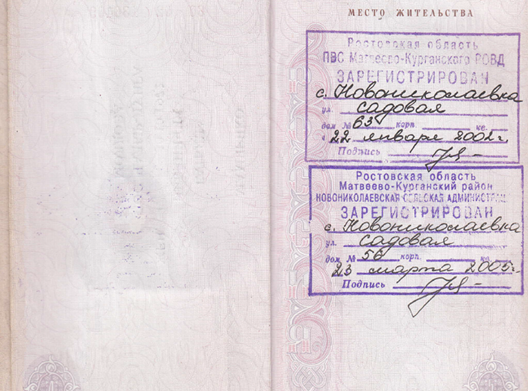 МЕСТО ЖИТЕЛЬСТВА
Ростовская область
ПВС Матвеево-Курганского РОВД
ЗАРЕГИСТРИРОВАН
с. Новониколаевка
ул. садовая
дом № 63 корп. кв.
22 января 2002 г.
Подпись
Ростовская область
Матвеево-Курганский район
НОВОНИКОЛАЕВСКАЯ СЕЛЬСКАЯ АДМИНИСТРАЦ
ЗАРЕГИСТРИРОВАН
с. Новониколаевка
ул. садовая
дом № 56 корп. кв.
23 марта 2005 г.
Подпись